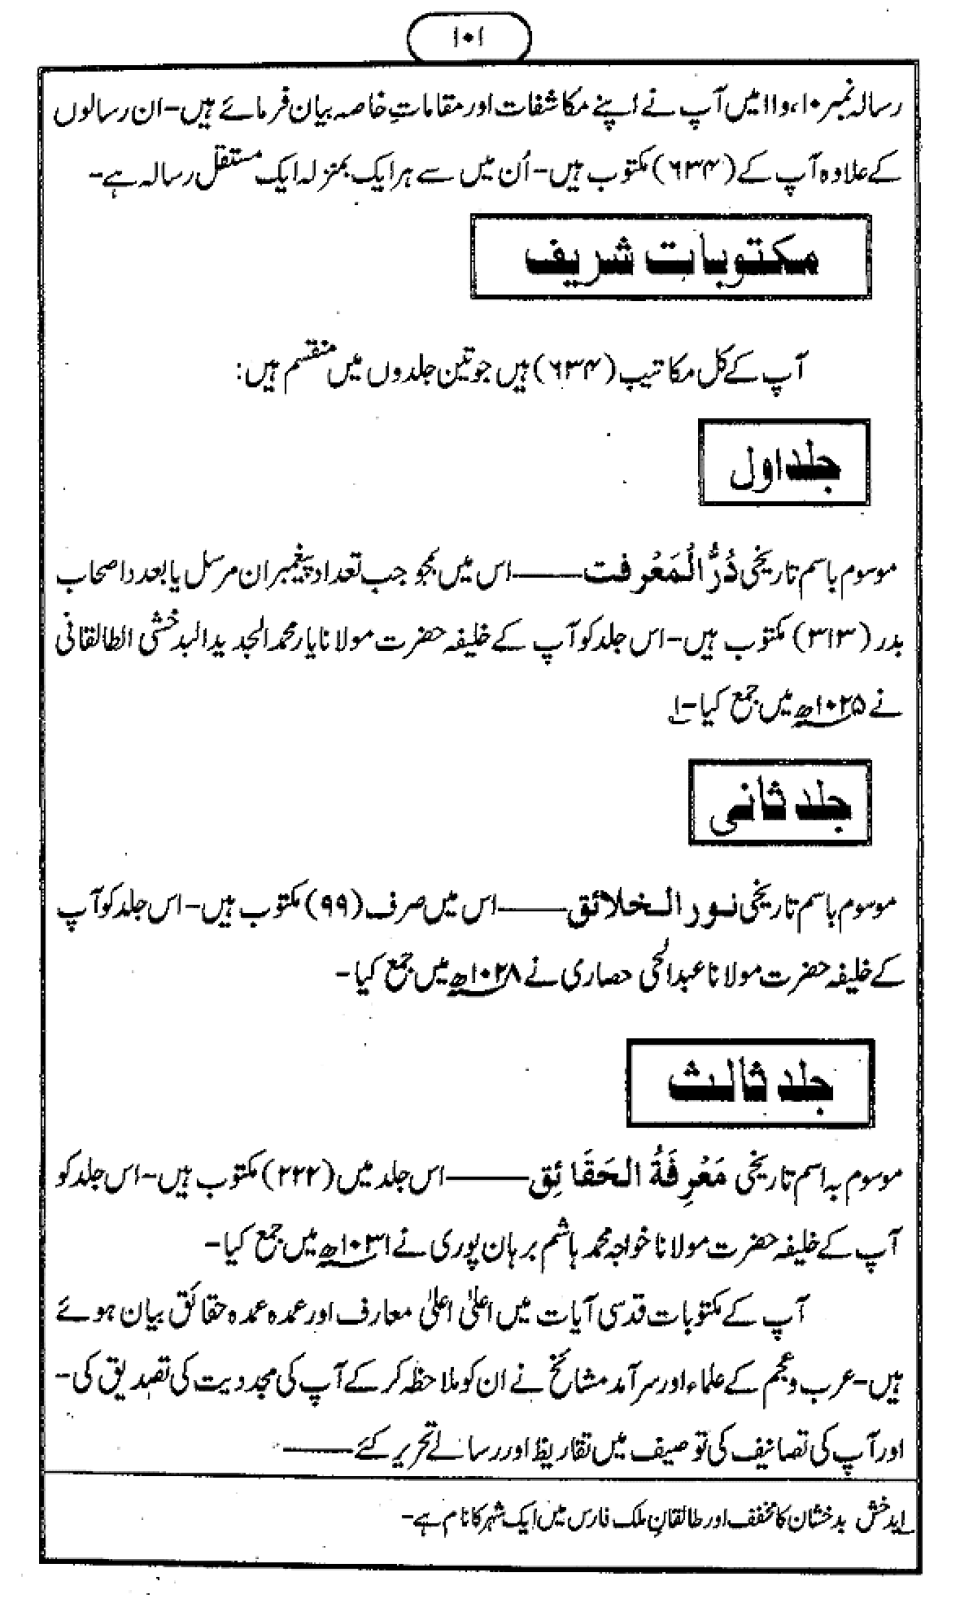 ۱۰۱
رسالہ نمبر ۱۰، و۱۱ میں آپ نے اپنے مکاشفات اور مقاماتِ خاصہ بیان فرمائے ہیں- ان رسالوں
کے علاوہ آپ کے (۶۳۴) مکتوب ہیں- اُن میں سے ہر ایک بمنزلہ ایک مستقل رسالہ ہے-
مکتوبات شریف
آپ کے کل مکاتیب (۶۳۴) ہیں جو تین جلدوں میں منقسم ہیں:
جلد اول
موسوم باسم تاریخی دُرُّ الْمَعْرِفت —— اس میں بموجب تعداد پیغمبران مرسل یا بعدد اصحاب
بدر (۳۱۳) مکتوب ہیں- اس جلد کو آپ کے خلیفہ حضرت مولانا یار محمد الجدید البدخشی الطالقانی
نے ۱۰۲۵ھ میں جمع کیا-۱
جلد ثانی
موسوم باسم تاریخی نور الخلائق —— اس میں صرف (۹۹) مکتوب ہیں- اس جلد کو آپ
کے خلیفہ حضرت مولانا عبدالحی حصاری نے ۱۰۲۸ھ میں جمع کیا-
جلد ثالث
موسوم بہ اسم تاریخی مَعْرِفَةُ الحَقَائِق —— اس جلد میں (۲۲۲) مکتوب ہیں- اس جلد کو
آپ کے خلیفہ حضرت مولانا خواجہ محمد ہاشم برہان پوری نے ۱۰۳۱ھ میں جمع کیا-
آپ کے مکتوبات قدسی آیات میں اعلیٰ اعلیٰ معارف اور عمدہ عمدہ حقائق بیان ہوئے
ہیں- عرب و عجم کے علماء اور سرآمد مشائخ نے ان کو ملاحظہ کر کے آپ کی مجددیت کی تصدیق کی-
اور آپ کی تصانیف کی توصیف میں تقاریظ اور رسالے تحریر کئے——
۱ بدخش بدخشان کا مخفف اور طالقان ملک فارس میں ایک شہر کا نام ہے-